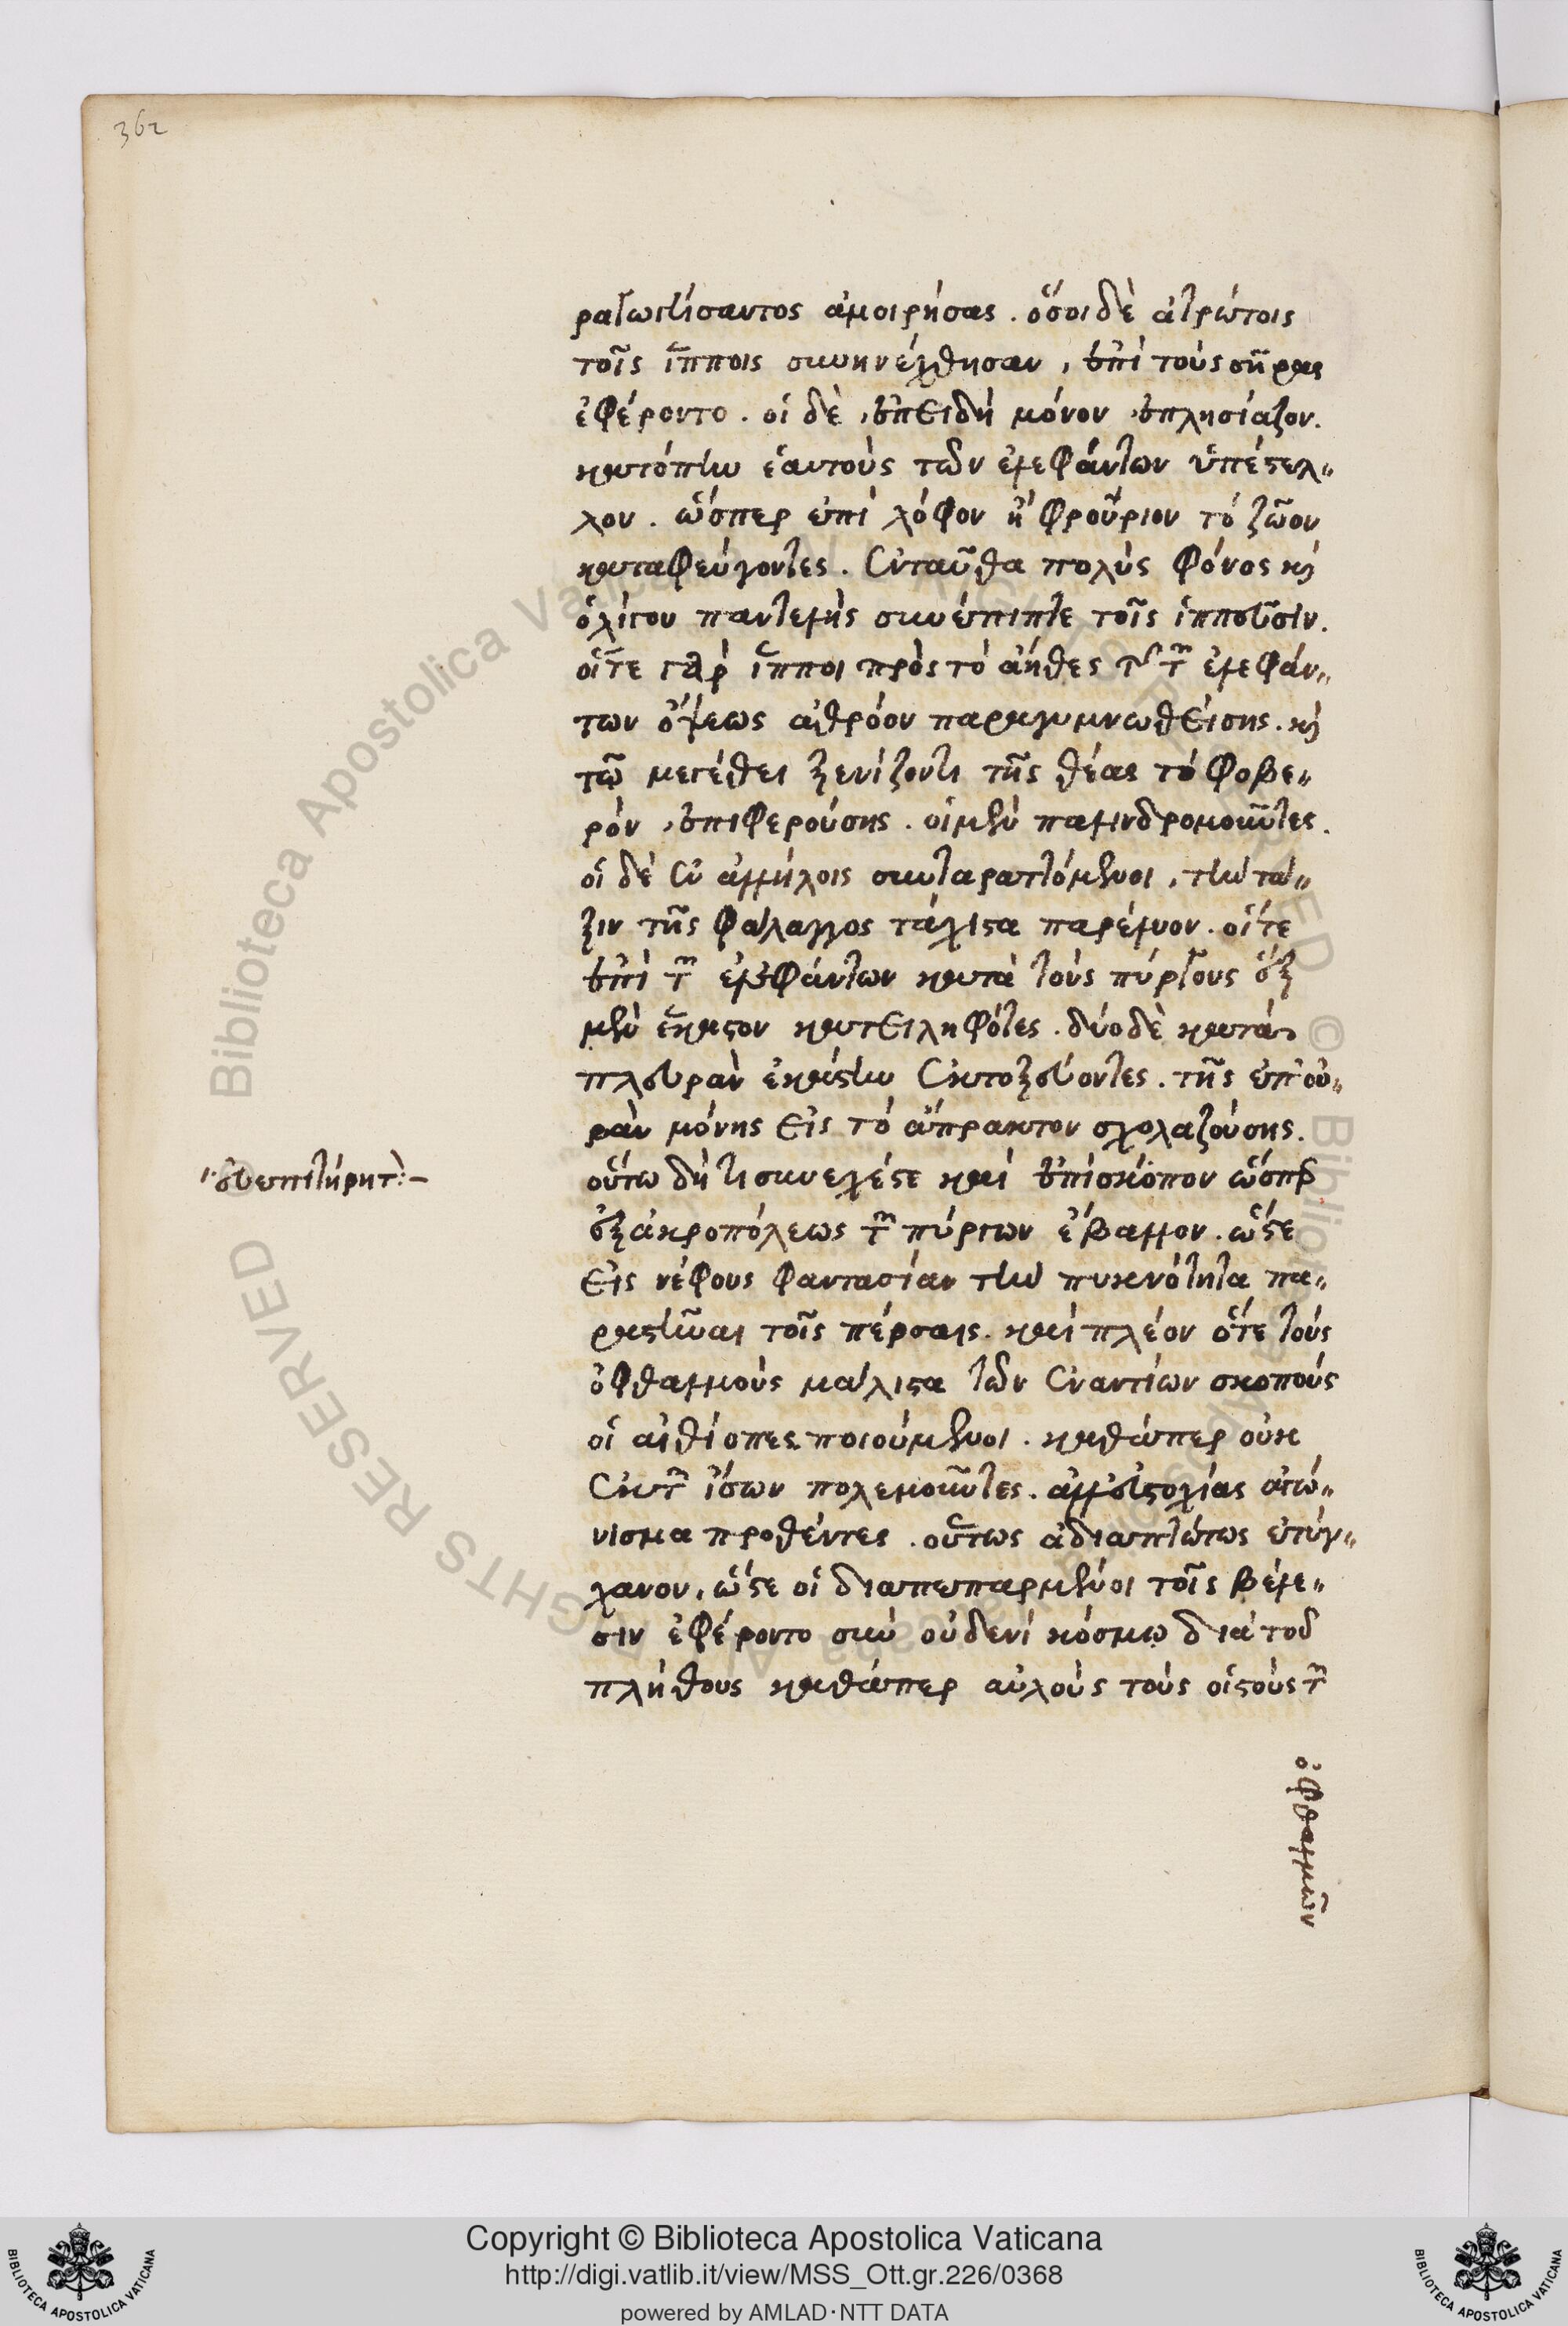 362
ραγωνίσαντος ἀμοιρήσας. ὅσοι δὲ ἀτρώτοις
τοῖς ἵπποις συνηνέχθησαν, ἐπὶ τοὺς σῆρας
ἐφέροντο. οἱ δὲ, ἐπειδὴ μόνον ἐπλησίαζον.
κατόπιν ἑαυτοὺς τῶν ἐλεφάντων ὑπέστελ„
λον. ὥσπερ ἐπὶ λόφον ἢ φρούριον τὸ ζῶον
καταφεύγοντες. ἐνταῦθα πολὺς φόνος καὶ
ὀλίγου παντελὴς συνέπιπτε τοῖς ἱππεῦσιν.
οἵτε γὰρ ἵπποι πρὸς τὸ ἀήθες τῆς τῶν ἐλεφάν„
των ὄψεως ἀθρόον παραγυμνωθείσης. καὶ
τῷ μεγέθει ξενίζοντι τῆς θέας τὸ φοβε„
ρὸν ἐπιφερούσης. οἱ μὲν παλινδρομοῦντες.
οἱ δὲ ἐν ἀλλήλοις συνταραττόμενοι, τὴν τά„
ξιν τῆς φάλαγγος τάχιστα παρέλυον. οἵτε
ἐπὶ τῶν ἐλεφάντων κατὰ τοὺς πύργους ἓξ
μὲν ἕκαστον κατειληφότες. δύο δὲ κατὰ
πλευρὰν ἑκάστην ἐκτοξεύοντες. τῆς ἐπ' οὐ„
ρὰν μόνης εἰς τὸ ἄπρακτον σχολαζούσης.
οὕτω δή τι συνεχέστε καὶ ἐπίσκοπον ὥσπερ
ἐξ ἀκροπόλεως τῶν πύργων ἔβαλλον. ὥστε
εἰς νέφους φαντασίαν τὴν πυκνότητα πα„
ραστῆναι τοῖς πέρσαις. καὶ πλέον ὅτε τοὺς
ὀφθαλμοὺς μάλιστα τῶν ἐναντίων σκοποὺς
οἱ αἰθίοπες ποιούμενοι. καθάπερ οὐκ
ἐκ τῶν ἴσων πολεμοῦντες. ἀλλ' εὐστοχίας ἀγώ„
νισμα προθέντες. οὕτως ἀδιαπτώτως ἐτύγ„
χανον, ὥστε οἱ διαπεπαρμένοι τοῖς βέλε„
σιν ἐφέροντο σὺν οὐδενὶ κόσμῳ διὰ τοῦ
πλήθους καθάπερ αὐλοὺς τοὺς οἰστοὺς τῶν
ὀφθαλμῶν
Copyright © Biblioteca Apostolica Vaticana
http://digi.vatlib.it/view/MSS_Ott.gr.226/0368
powered by AMLAD·NTT DATA